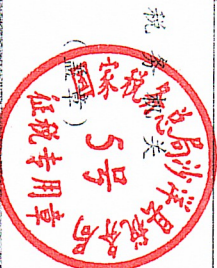 税务机关
(盖章)
国家税务总局沙洋县税务局
5号
征税专用章